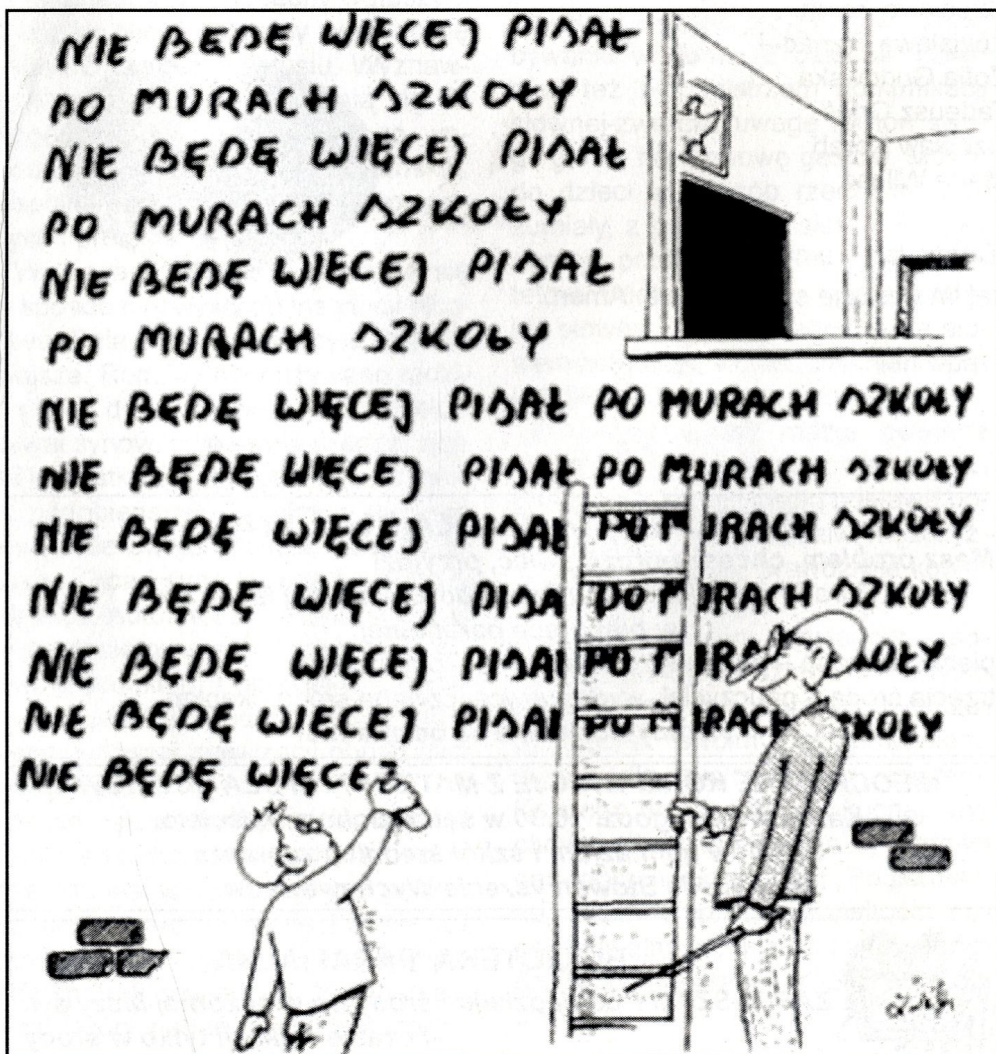 NIE BĘDĘ WIĘCEJ PISAŁ
PO MURACH SZKOŁY
NIE BĘDĘ WIĘCEJ PISAŁ
PO MURACH SZKOŁY
NIE BĘDĘ WIĘCEJ PISAŁ
PO MURACH SZKOŁY
NIE BĘDĘ WIĘCEJ PISAŁ PO MURACH SZKOŁY
NIE BĘDĘ WIĘCEJ PISAŁ PO MURACH SZKOŁY
NIE BĘDĘ WIĘCEJ PISAŁ PO MURACH SZKOŁY
NIE BĘDĘ WIĘCEJ PISA PO MURACH SZKOŁY
NIE BĘDĘ WIĘCEJ PISAŁ PO MURA KOŁY
NIE BĘDĘ WIĘCEJ PISAŁ PO MURACH SZKOŁY
NIE BĘDĘ WIĘCEJ